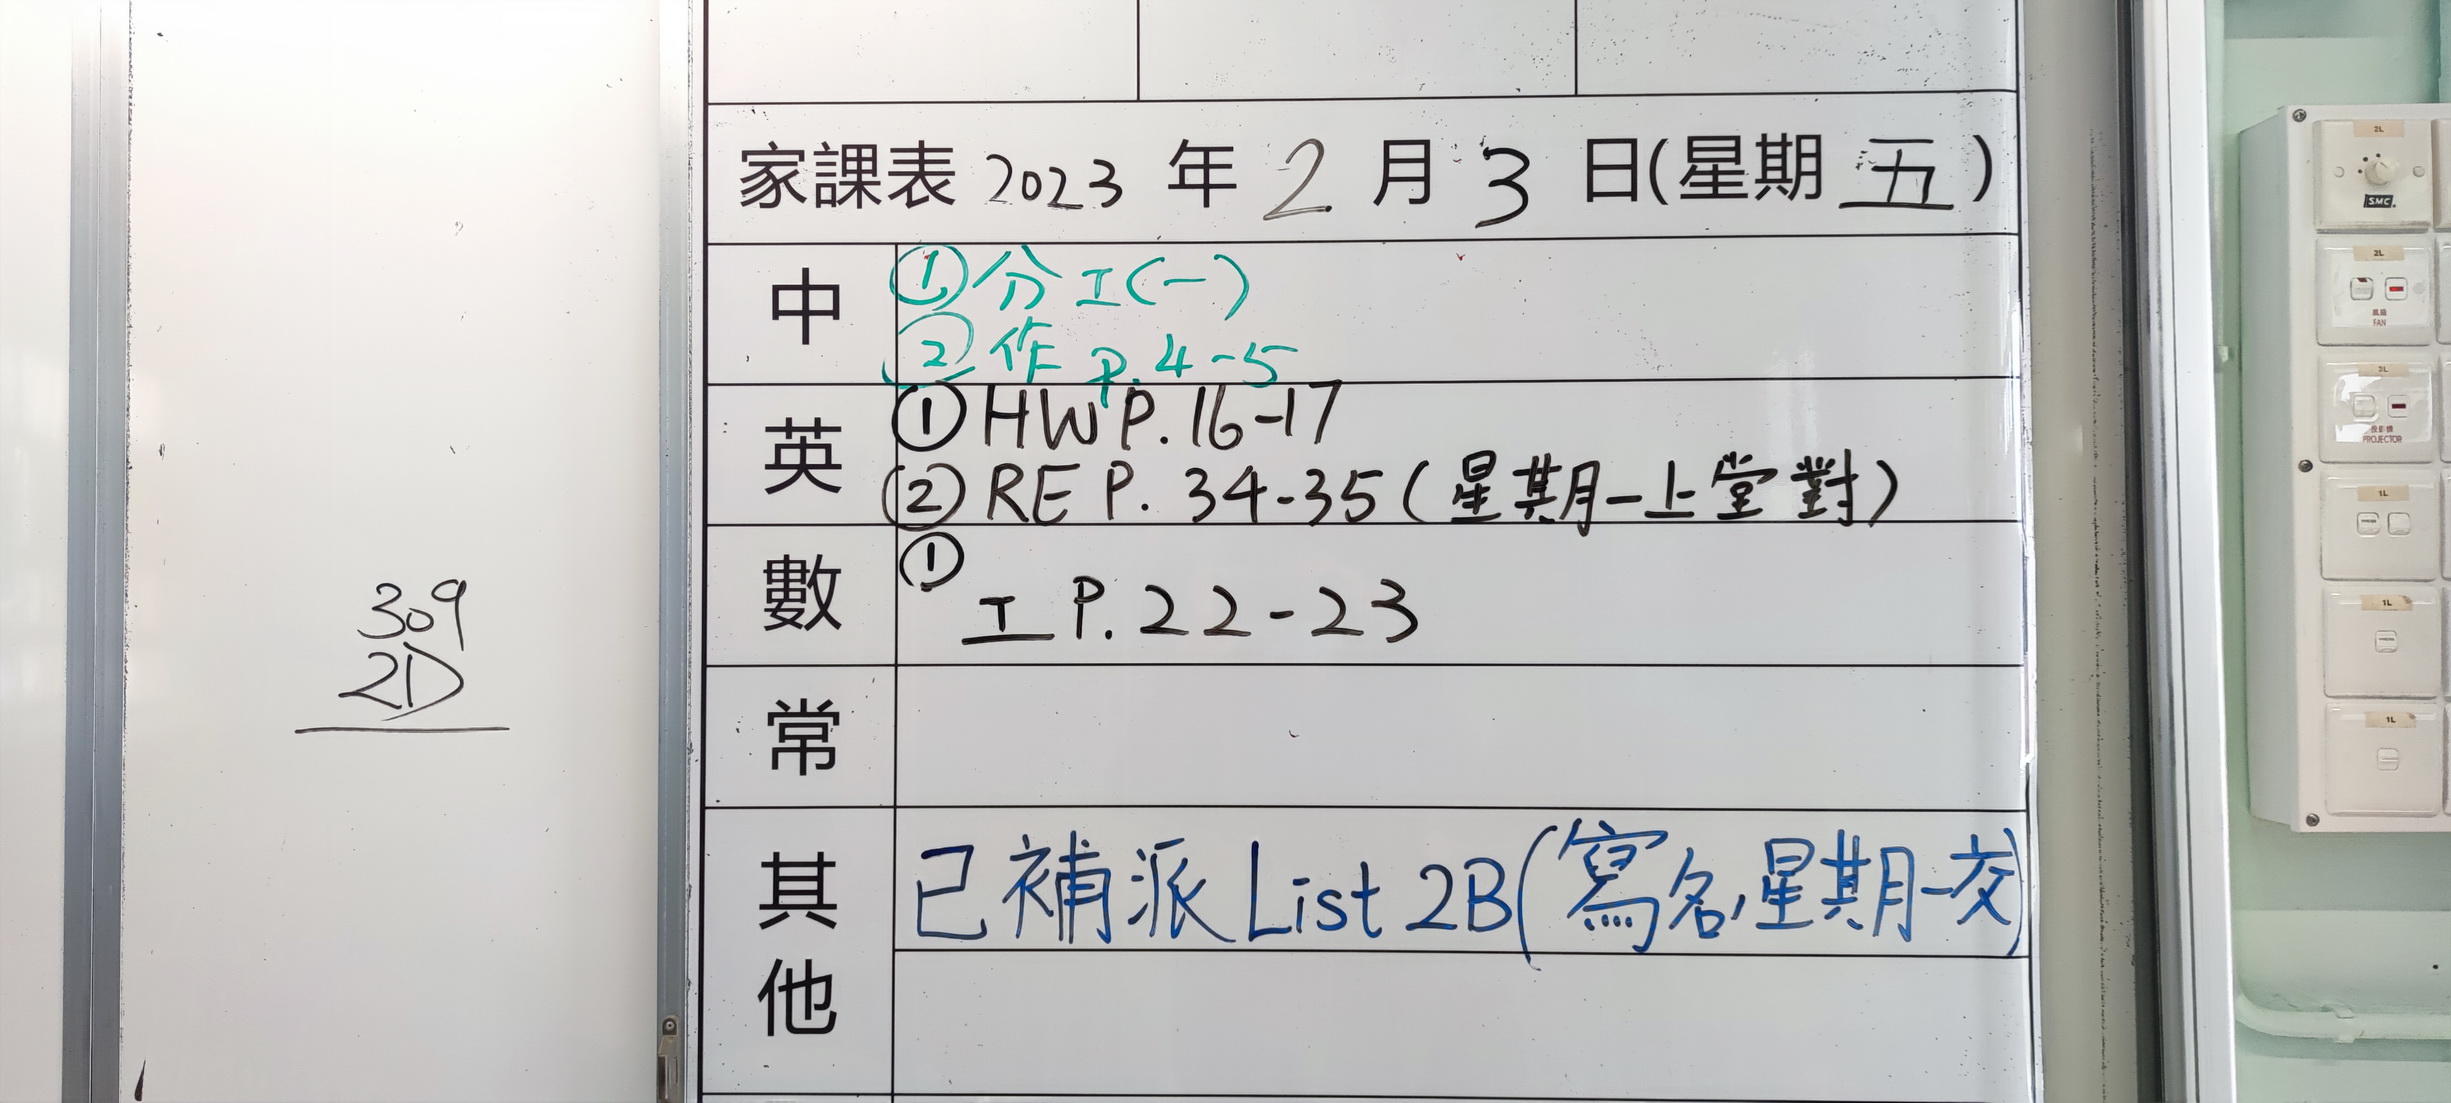 家課表 2023 年 2 月 3 日(星期 五)
中
①分工(一)
②作 P.4-5
英
①HW P.16-17
②RE P. 34-35(星期一上堂對)
數
①
工 P.22-23
常
其他
已補派 List 2B(寫名,星期一交)
309
2D
2L
SMC
2L
風扇
FAN
2L
投影機
PROJECTOR
1L
1L
1L